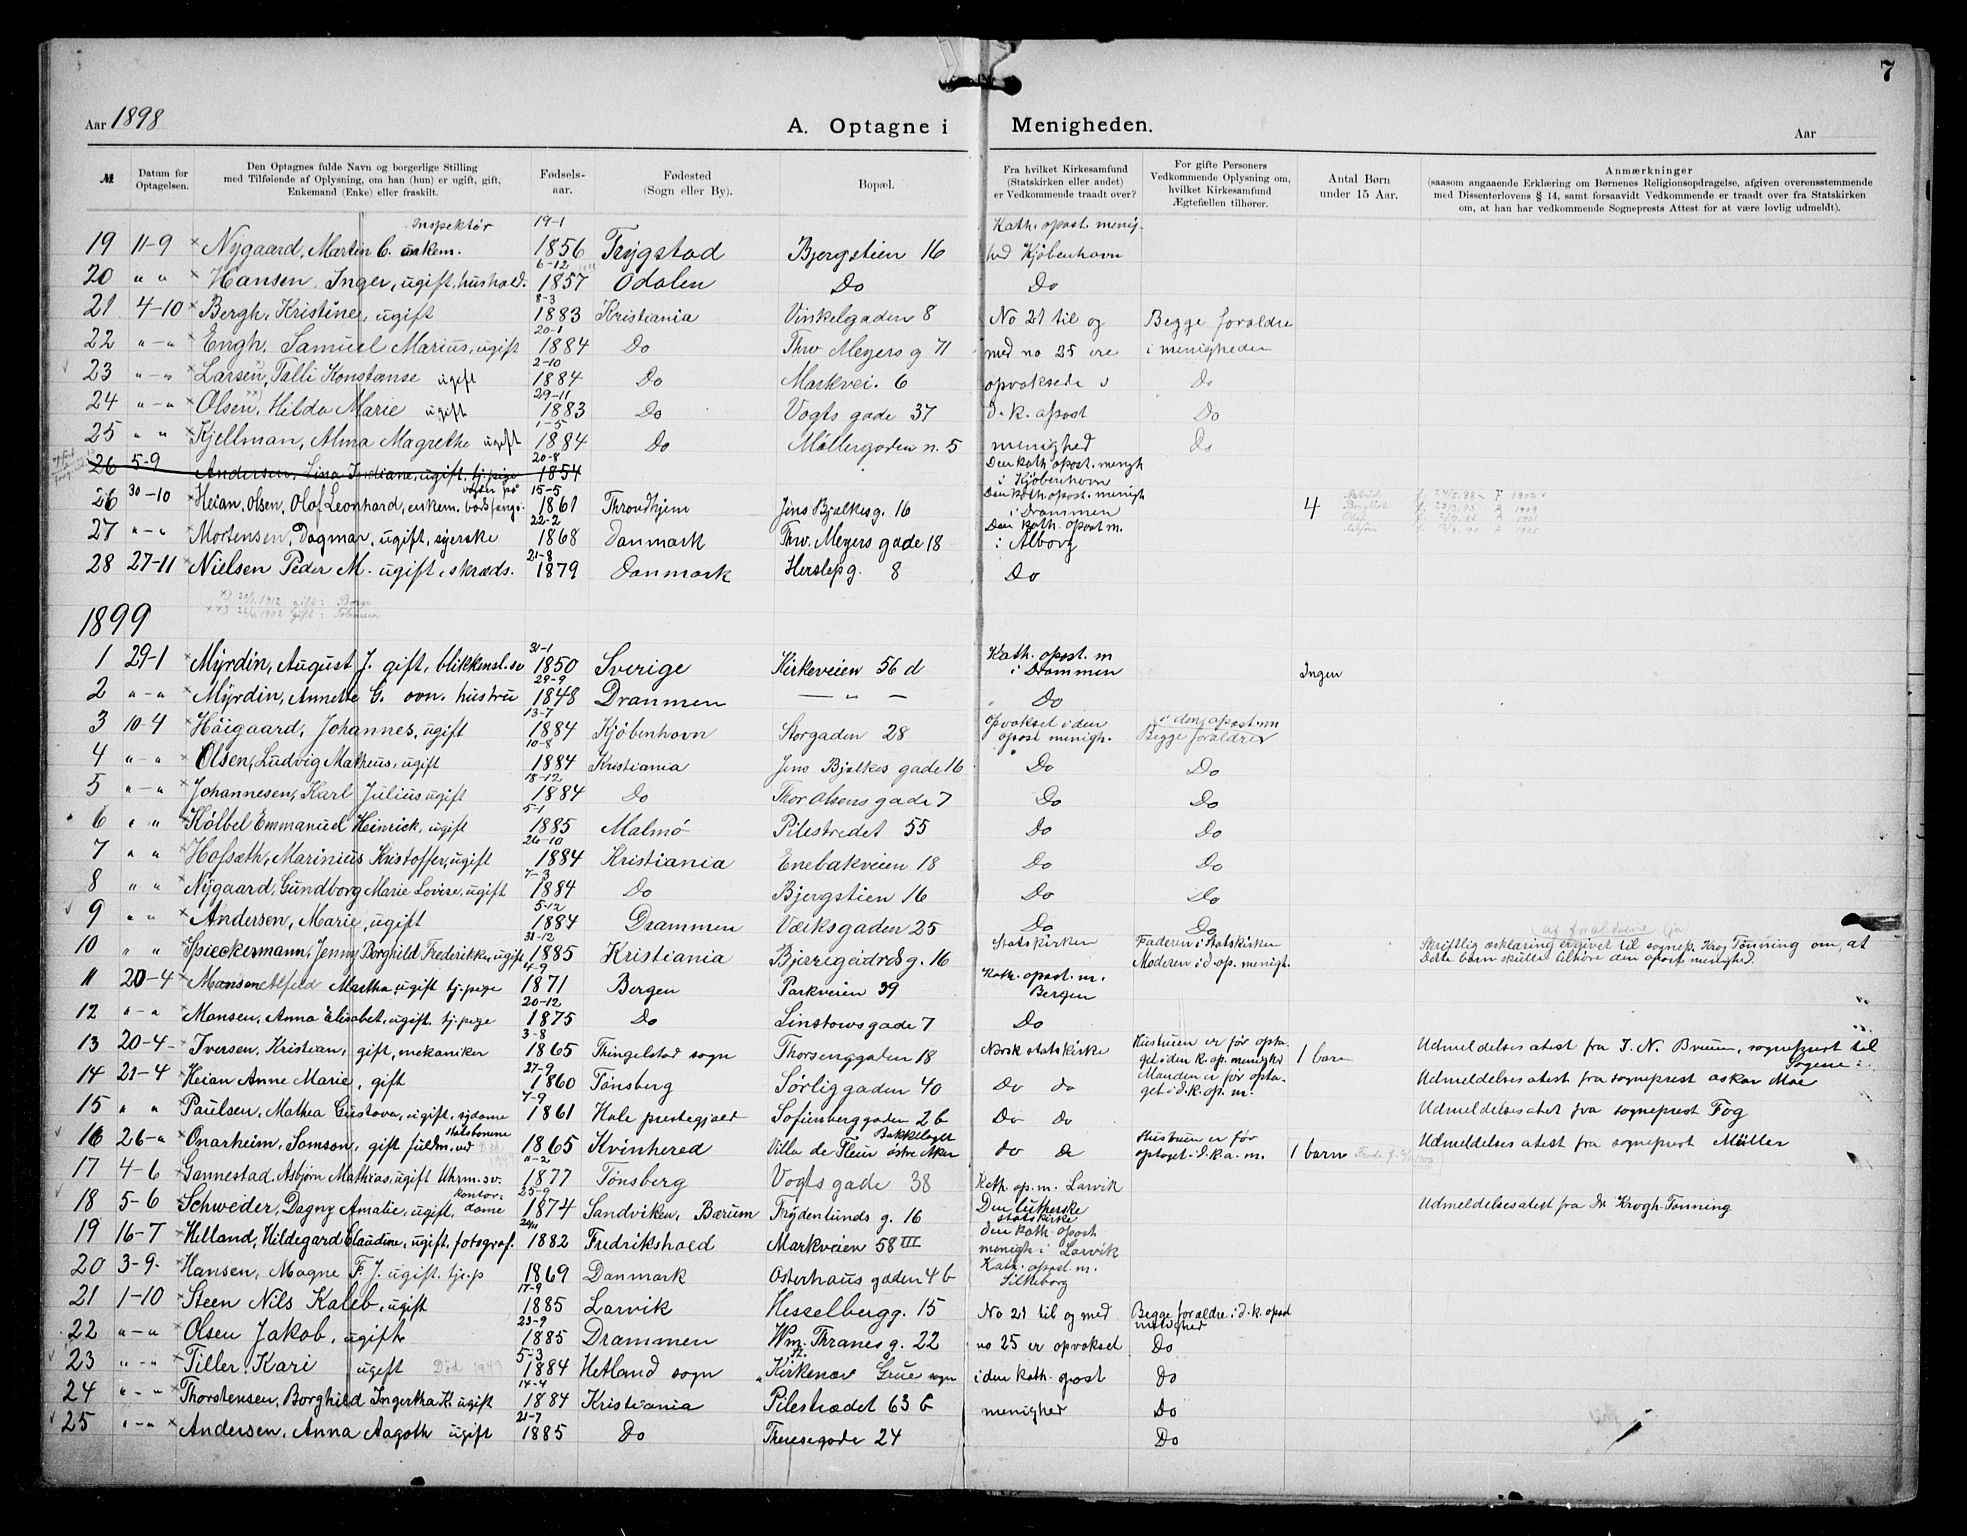 7
Aar 1898
A. Optagne i Menigheden.
Aar
№ Datum for Optagelsen. Den Optagnes fulde Navn og borgerlige Stilling med Tilføiende af Oplysning, om han (hun) er ugift, gift, Enkemand (Enke) eller fraskilt. Fødsels-aar. Fødested (Sogn eller By). Bopæl. Fra hvilket Kirkesamfund (Statskirken eller andet) er Vedkommende traadt over? For gifte Personers Vedkommende Oplysning om, hvilket Kirkesamfund Ægtefællen tilhører. Antal Børn under 15 Aar. Anmærkninger (saasom angaaende Erklæring om Børnenes Religionsopdragelse, afgiven overensstemmende med Dissenterlovens § 14, samt forsaavidt Vedkommende er traadt over fra Statskirken om, at han har vedkommende Sogneprests Attest for at være lovlig udmeldt).
Inspektør 19-1 Kath. apost. menig-
19 11-9 Nygaard, Martin C. enkem. 1856 Trygstad Bjergstien 16 hed Kjøbenhavn
6-12
20 „ „ Hansen, Inger, ugift, hushold. 1857 Odalen Do Do
8-3
21 4-10 Bergh, Kristine, ugift 1883 Kristiania Vinkelgaden 8 No 21 til og Begge foraldre
20-1
22 „-„ Engh, Samuel Marius, ugift 1884 Do Thv Meyers g 71 med no 25 ere i menigheden
2-10
23 „-„ Larsen, Talli Konstanse ugift 1884 Do Markvei. 6 opvoksede i Do
29-11
24 „-„ Olsen, Hilda Marie ugift 1883 Do Vogts gade 37 d. k. apost Do
1-5
25 „ „ Kjellman, Alma Magrethe ugift 1884 Do Møllergaden n. 5 menighed Do
20-8
26 5-9 Andersen, Lina Indiane, ugift, tj. pige 1854 Den kath. apost. menigh i Kjøbenhavn
15-5
26 30-10 Heian, Olsen, Olaf Leonhard, enkem. bodsfengs. 1861 Throndhjem Jens Bjelkes g. 16 Den kath. apost. menigh i Drammen 4
22-2
27 „-„ Mortensen, Dagmar, ugift, syerske 1868 Danmark Thv. Meyers gade 18 Den kath. apost m. i Alborg
21-8
28 27-11 Nielsen Peder M. ugift, skræds. 1879 Danmark Herslebg. 8 Do
×) 1912 gift: Borge
××) 1902 gift:
1899
31-1
1 29-1 Myrdin, August J. gift, blikkensl. sv 1850 Sverige Kirkeveien 56 d Kath. apost. m i Drammen Ingen
29-9
2 „-„ Myrdin, Annette G. ovn. hustru 1848 Drammen — „ — Do
13-7
3 10-4 Høigaard, Johannes, ugift 1884 Kjøbenhavn Storgaden 28 opvokset i den apost menigh. i den apost. m Begge foraldre
10-8
4 „-„ Olsen, Ludvig Matheus, ugift 1884 Kristiania Jens Bjelkes gade 16 Do Do
18-12
5 „-„ Johannesen, Karl Julius ugift 1884 Do Thor Olsens gade 7 Do Do
5-1
6 „ „ Kölbel Emmanuel Heinrick, ugift 1885 Malmø Pilestredet 55 Do Do
26-10
7 „ „ Hofsæth, Marinius Kristoffer, ugift 1884 Kristiania Enebakveien 18 Do Do
7-3
8 „ „ Nygaard, Gundborg Marie Lovise, ugift 1884 Do Bjergstien 16 Do Do
5-12
9 „ „ Andersen, Marie, ugift 1884 Drammen Væiksgaden 25 Do Do
31-12
10 „ „ Spieckermann, Jenny Borghild Frederikke, ugift 1885 Kristiania Bjerregardsg. 16 Statskirken Faderen i Statskirken Moderen i d. ap. menigh. Skriftlig erklaring er givet til sognep. Krog Tønning om, at dette barn skulle tilhøre den apost menighed.
4-9
11 20-4 Mansen Alfeld Martha, ugift tj. pige 1871 Bergen Parkveien 39 Kath. apost. m. Bergen
20-12
12 „-„ Monsen, Anna Elisabet, ugift. tj. pige 1875 Do Linstows gade 7 Do
3-8
13 20-4- Iversen, Kristian, gift, mekaniker 1865 Thingelstad sogn Thorsenggaten 18 Norsk statskirke Hustruen er før optaget i den k. ap. menighed 1 barn Udmeldelses atest fra J. N. Bruun, sogneprest til
27-9
14 21-4 Heian Anne Marie, gift 1860 Tønsberg Sørliggaden 40 Do do Manden er før optaget i d. k. ap. m. Udmeldelsesatest fra sogneprest Oskar Moe
7-9
15 „ „ Paulsen, Mathea Gustava, ugift, sydame 1861 Hole prestegjeld Sofienberggaden 2 b Do do Udmeldelses atest fra sogneprest Fog
16 26-„ Onarheim, Samson, gift fuldm. ved statsbanene 1865 Kvinhered Villa de Fleur østre Aker Bakkelaget do do Hustruen er før optaget i d. k. a. m. 1 barn Udmeldelses atest fra sogneprest Müller
11-2
17 4-6 Gannestad, Asbjørn Mathias, ugift Uhrm. sv. 1877 Tønsberg Vogts gade 38 Kath ap. m. Larvik
25-9
18 5-6 Schweder, Dagny Amalie, ugift, kontordame 1874 Sandviken, Bærum Frydenlunds g. 16 Den lutherske statskirke Udmeldelsesatest fra Dr Krogh-Tonning
19 16-7 Helland, Hildegard Claudine, ugift, fotograf. 1882 Fredrikshald Markveien 58 III den kath. apost menigh. i Larvik
20 3-9- Hansen, Magne F. J. ugift. tje.p 1869 Danmark Osterhausgaden 4 b Kath. apost. m. Silkeborg
17-9
21 1-10 Steen Nils Kaleb, ugift 1885 Larvik Hesselbergg. 15 No 21 til og med Begge foraldre i d. k. apost menighed
23-9
22 „-„ Olsen Jakob, ugift 1885 Drammen Wm. Thranes g. 22 no 25 er opvokset Do
5-3
23 „-„ Tiller Kari ugift Død 1949 1884 Hetland sogn Kirkenær Grue sogn i den kath. apost Do
14-4
24 „-„ Thorstensen, Borghild Ingertha K. ugift 1884 Kristiania Pilestrædet 63 b menighed Do
21-7
25 „-„ Andersen, Anna Aagoth ugift 1885 Do Theresegade 24 Do